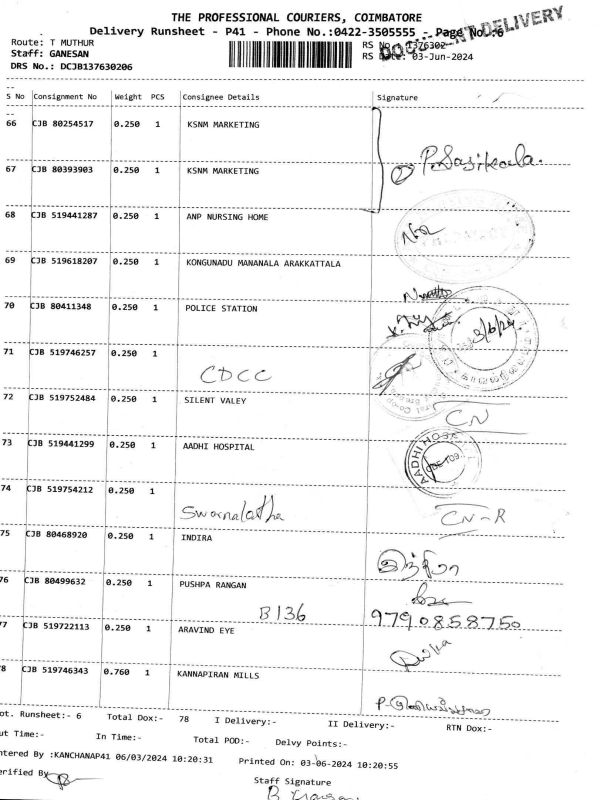 THE PROFESSIONAL COURIERS, COIMBATORE
Delivery Runsheet - P41 - Phone No.:0422-3505555 - Page No.:6
Route: T MUTHUR RS No.: 1376302
Staff: GANESAN RS Date: 03-Jun-2024
DRS No.: DCJB137630206
S No Consignment No Weight PCS Consignee Details Signature
66 CJB 80254517 0.250 1 KSNM MARKETING
P. Sasikala.
67 CJB 80393903 0.250 1 KSNM MARKETING
68 CJB 519441287 0.250 1 ANP NURSING HOME
69 CJB 519618207 0.250 1 KONGUNADU MANANALA ARAKKATTALA
70 CJB 80411348 0.250 1 POLICE STATION
3/6/24
71 CJB 519746257 0.250 1
CDCC
72 CJB 519752484 0.250 1 SILENT VALEY
CN
73 CJB 519441299 0.250 1 AADHI HOSPITAL
AADHI HOS
74 CJB 519754212 0.250 1
Swarnalatha CN-R
75 CJB 80468920 0.250 1 INDIRA
இந்திரா
76 CJB 80499632 0.250 1 PUSHPA RANGAN
B136 9790858750
77 CJB 519722113 0.250 1 ARAVIND EYE
78 CJB 519746343 0.760 1 KANNAPIRAN MILLS
ot. Runsheet:- 6 Total Dox:- 78 I Delivery:- II Delivery:- RTN Dox:-
ut Time:- In Time:- Total POD:- Delvy Points:-
ntered By :KANCHANAP41 06/03/2024 10:20:31 Printed On: 03-06-2024 10:20:55
erified By
Staff Signature